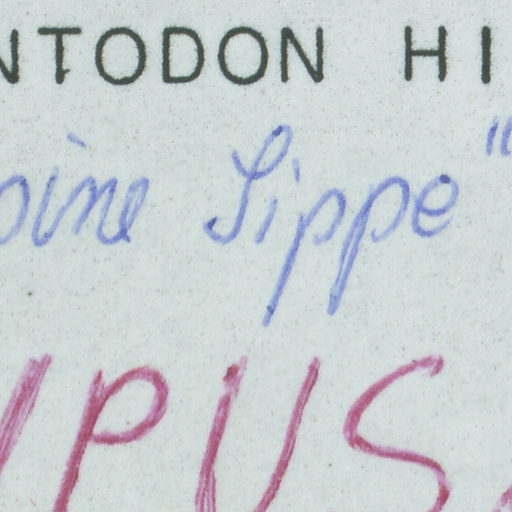 NTODON HI
oine Lippe "
YPUS